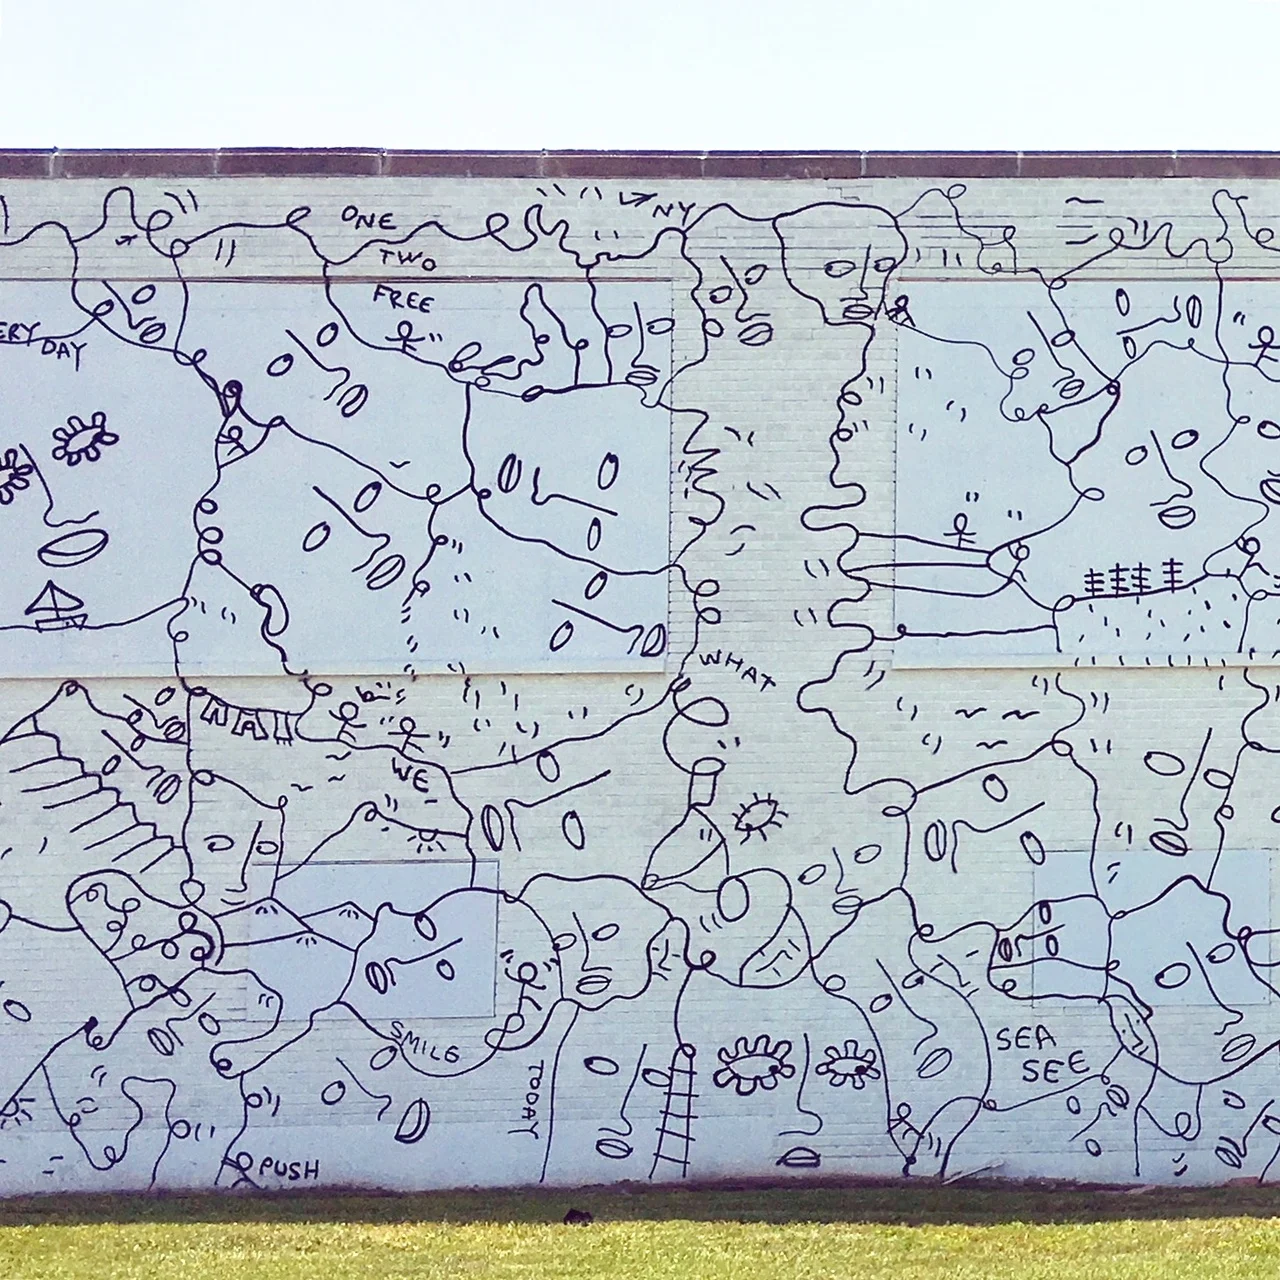 ONE
NY
TWO
FREE
ERY DAY
WHAT
WE
SMILE
SEA
SEE
TODAY
PUSH